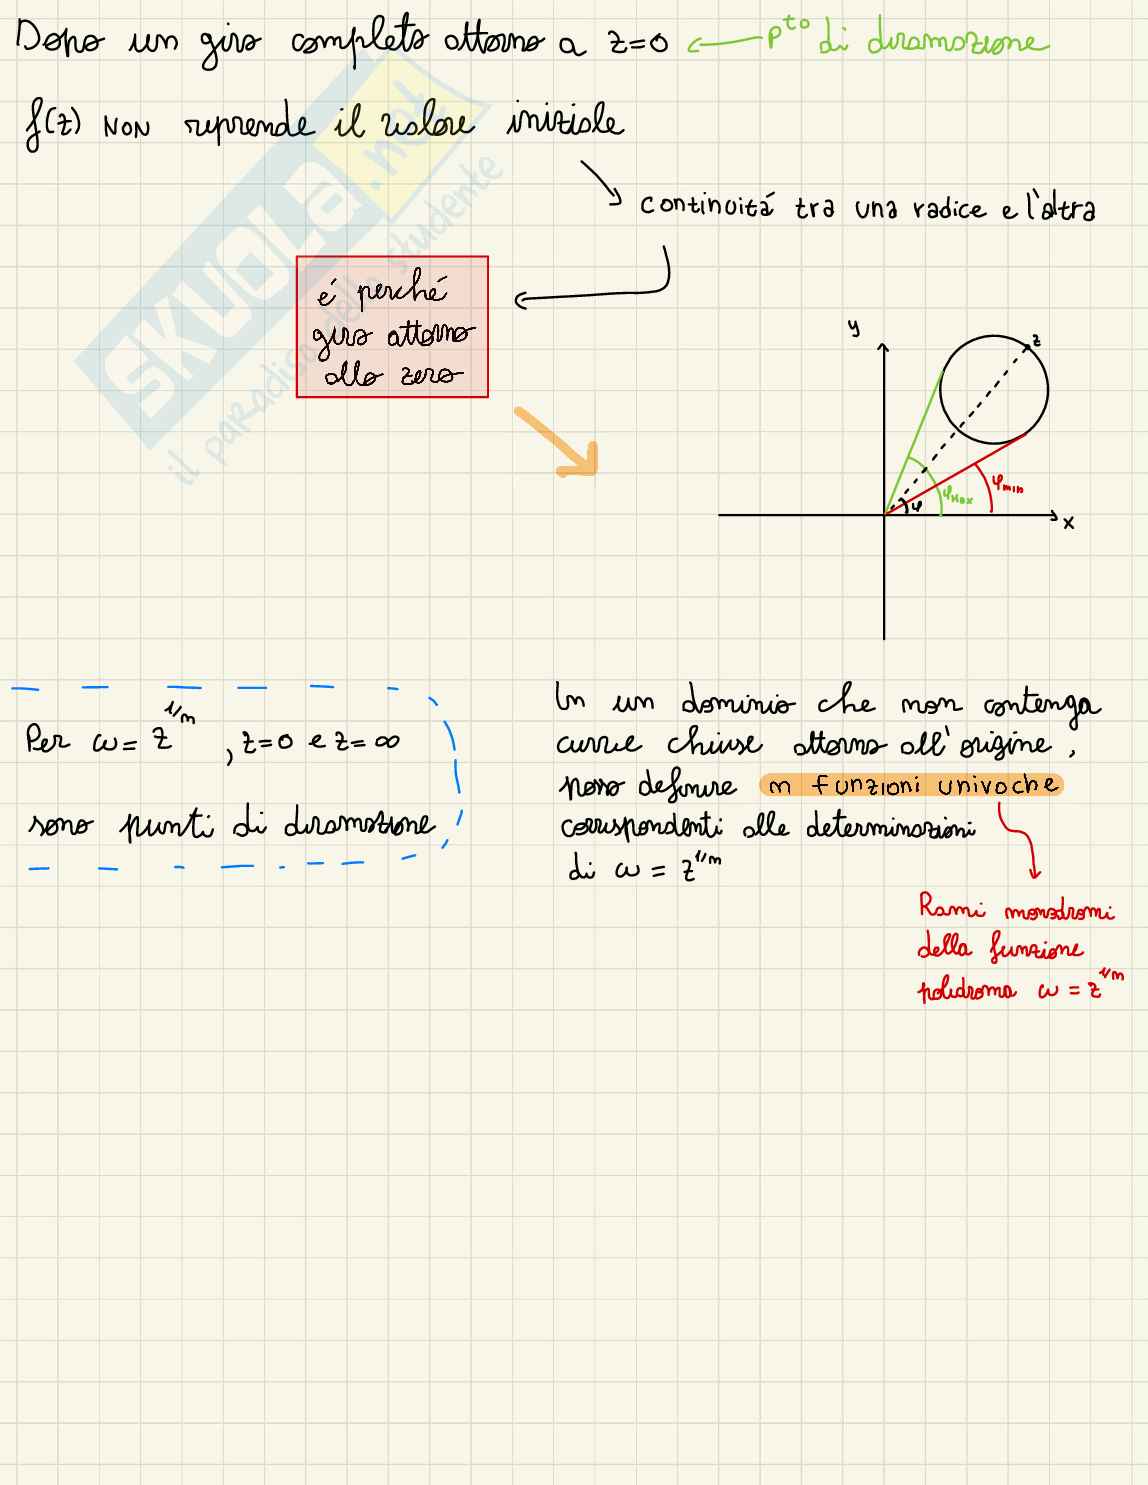 Dopo un giro completo attorno a z=0 ← pto di diramazione
f(z) NON riprende il valore iniziale
continuitá tra una radice e l'altra
é perché
giro attorno
allo zero
y
z
φMax
φmin
φ
x
Per ω = z^1/n , z=0 e z=∞
sono punti di diramazione
In un dominio che non contenga
curve chiuse attorno all'origine,
posso definire n funzioni univoche
corrispondenti alle determinazioni
di ω = z^1/n
Rami monodromi
della funzione
polidroma ω = z^1/n
SKUOLA.net
il paradiso dello studente